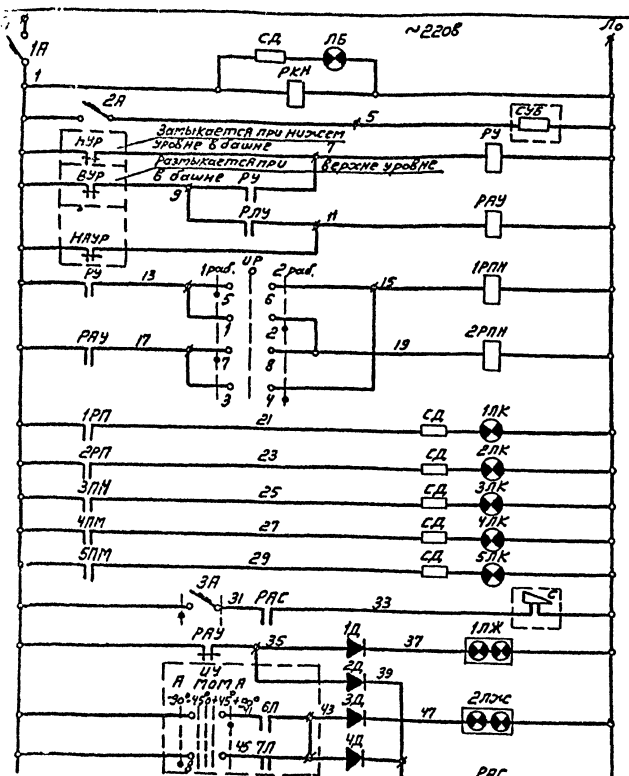 ~220в
Ло
1А
СД
ЛБ
1
РКН
2А
5
СУБ
НУР
Замыкается при нижем
уровне в башне
7
РУ
ВУР
Размыкается при
верхне уровне
в башне
9
РУ
РЛУ
11
РАУ
НАУР
РУ
13
1раб.
UP
2раб.
15
1РПН
5
6
1
2
РАУ
17
19
2РПН
7
8
3
4
1РП
21
СД
1ЛК
2РП
23
СД
2ЛК
3ПМ
25
СД
3ЛК
4ПМ
27
СД
4ЛК
5ПМ
29
СД
5ЛК
3А
31
РАС
33
С
РАУ
35
1Д
37
1ЛЖ
ИУ
2Д
39
А МОМ А
-90°-45°0+45°+90°
41
6Л
43
3Д
47
2ЛЖ
45
7Л
4Д
РАС